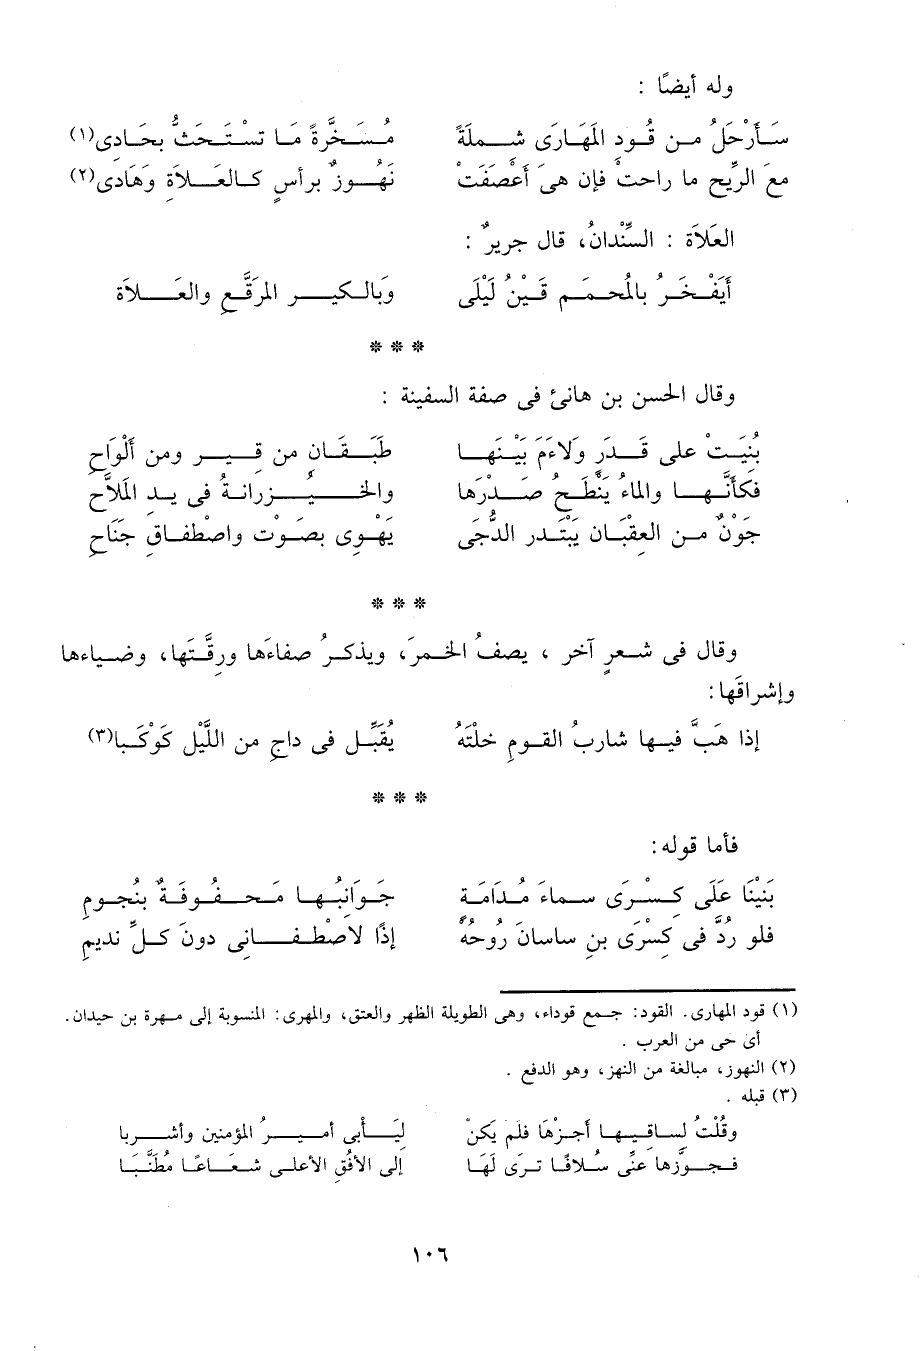 وله أيضًا :
سَأَرْحَلُ مـن قُـودِ المَهَارَى شِـمِلَّةً مُـسَخَّرةً مَـا تسْـتَـحثُّ بِحَـادى(١)
مَعَ الرِّيحِ ما راحتْ فإن هىَ أَعْصَفَتْ نَهُـوزٌ برأسٍ كـالعَـلاَةِ وَهَادى(٢)
العَلاَة : السِّنْدانُ، قال جريرٌ :
أَيَفْـخَـرُ بالمُحـمَـم قَـيْنُ لَيْلَى وَبَالـكيـر المرَقَّـعِ والعَـلاَة
* * *
وقال الحسن بن هانئ فى صفة السفينة :
بُنِيَـتْ على قَـدَرٍ وَلاءَمَ بَيْنَهَـا طَبَـقَـانِ من قِـيـرٍ ومن أَلْوَاحِ
فكأنَّـهـا والماءُ يَنْطَـحُ صَـدْرَهَا والخَيْـزرانـةُ فى يـد المَلاَّحِ
جَوْنٌ مـن العِقْبَان يَبْتَـدر الدُّجَى يَهْـوِى بِصَوْتٍ واصْطِفَـاقِ جَنَاحِ
* * *
وقال فى شـعرٍ آخر ، يصفُ الخـمرَ، ويذكـرُ صفاءَها ورِقَّـتَها، وضيـاءها
وإشراقَها:
إذا هَبَّ فيـها شاربُ القـومِ خلْتَهُ يُقَبِّـل فى داجٍ من اللَّيْلِ كَوْكَبـا(٣)
* * *
فأما قوله:
بَنَيْنَا عَلَى كِـسْرَى سـماءَ مُـدَامَـةٍ جَـوَانِبُـهـا مَـحـفُـوفَـةٌ بِنُجـومِ
فلو رُدَّ فى كِسْرَى بنِ ساسانَ رُوحُهُ إذًا لاصْطفـانِى دونَ كـلِّ نديمِ
(١) قود المهارى. القود: جـمع قوداء، وهى الطويلة الظهر والعنق، والمهرى: المنسوبة إلى مـهرة بن حيدان.
أى حى من العرب .
(٢) النهوز، مبالغة من النهز، وهو الدفع .
(٣) قبله .
وقُلْتُ لِسـاقيـهـا أَجِـزْهَا فلم يكنْ لِيَـأبى أمـيـرُ المؤمنين وأشـربـا
فـجـوَّزها عنِّى سُـلافًـا تَرَى لَهَا إلى الأفُقِ الأعلـى شـعَـاعًـا مُطَنَّبَا
١٠٦